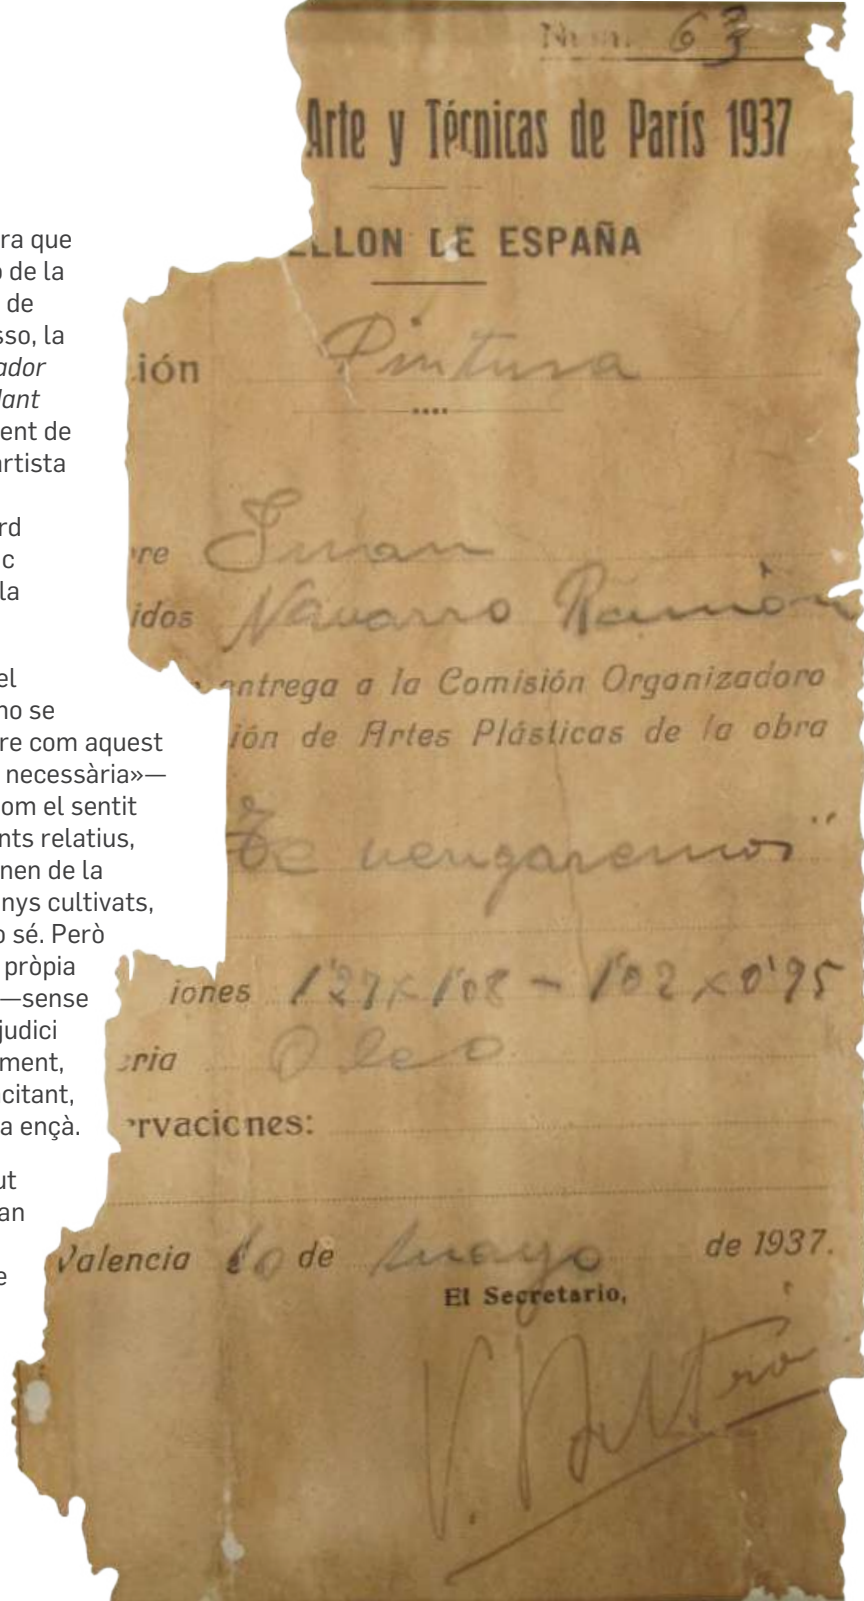 ra que
o de la
de
sso, la
ador
dant
ent de
artista
rd
c
la
el
no se
re com aquest
necessària»—
om el sentit
nts relatius,
nen de la
nys cultivats,
o sé. Però
pròpia
—sense
judici
ment,
citant,
a ençà.
ut
an
e
Núm. 63
Arte y Técnicas de París 1937
ELLON DE ESPAÑA
ión Pintura
re Juan
idos Navarro Ramón
entrega a la Comisión Organizadora
ión de Artes Plásticas de la obra
Te vengaremos"
iones 1'27 x 1'08 - 1'02 x 0'95
eria Oleo
rvaciones:
Valencia 10 de mayo de 1937.
El Secretario,